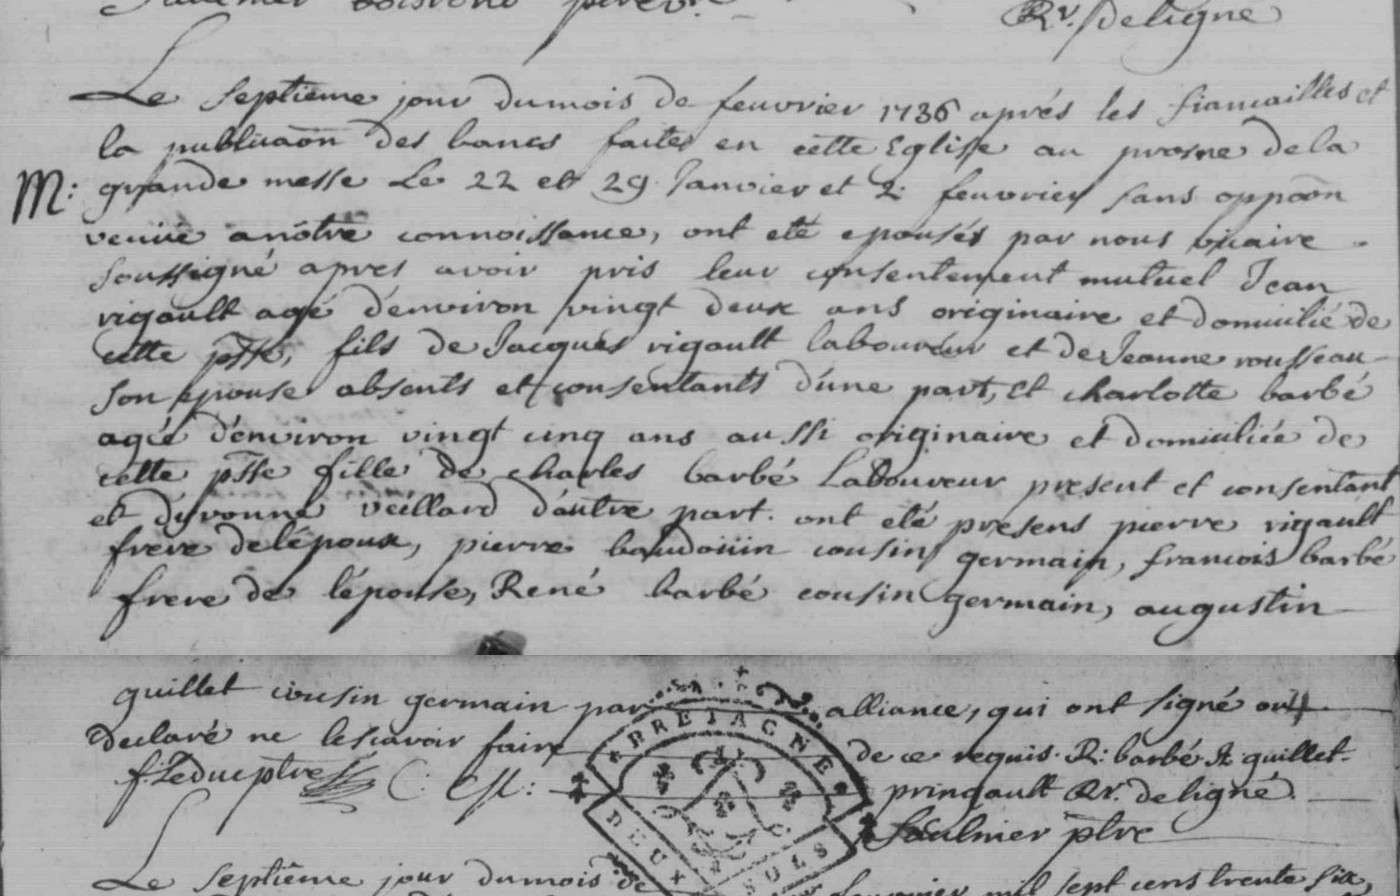 Rr. / de ligne
Le Septieme jour du mois de feuvrier 1736 aprés les fiancailles et
la publicaōn des bancs faites en cette Eglise au prosne de la
M: grande messe Le 22 et 29 Janvier et 2 feuvrier sans oppoōn
venüe a nôtre connoissance, ont eté epousés par nous vicaire
soussigné apres avoir pris leur consentement mutuel Jean
rigault agé d'environ vingt deux ans originaire et domicilié de
cette psse, fils de Jacques rigault laboureur et de Jeanne rousseau
son epouse absents et consentants d'une part, Et charlotte barbé
agée d'environ vingt cinq ans aussi originaire et domiciliée de
cette psse fille de charles barbé Laboureur present et consentant
et dyvonne veillard d'autre part. ont eté presens pierre rigault
frere de lépoux, pierre baudoüin cousin germain, francois barbé
frere de lépouse, René barbé cousin germain, augustin
guillet cousin germain par alliance, qui ont signé ou
declaré ne le scavoir faire de ce requis. R: barbé A: guillet.
f. Leduc ptre C. Est: pringault Rr. de ligné.
Saulnier ptre
BRETAGNE
DEUX SOLS
Le septième jour du mois de feuvrier mil sept cens trente six,